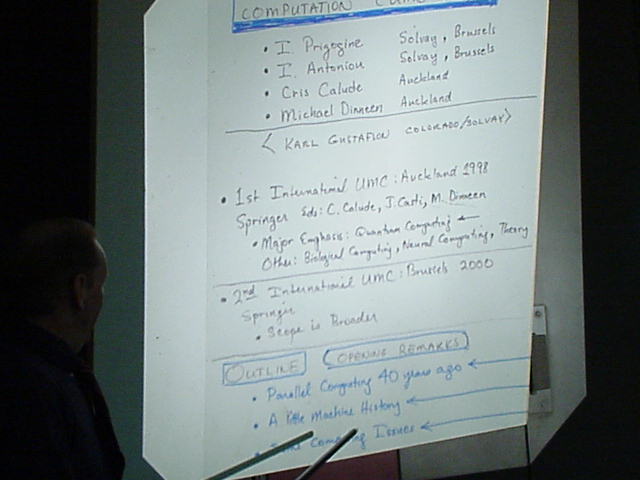 COMPUTATION
• I. Prigogine Solvay, Brussels
• I. Antoniou Solvay, Brussels
• Cris Calude Auckland
• Michael Dinneen Auckland
< KARL GUSTAFSON COLORADO/SOLVAY>
• 1st International UMC: Auckland 1998
Springer Eds: C. Calude, J. Casti, M. Dinneen
• Major Emphasis: Quantum Computing ←
Other: Biological Computing, Neural Computing, Theory
• 2nd International UMC: Brussels 2000
Springer
• Scope is Broader
OUTLINE OPENING REMARKS
• Parallel Computing 40 years ago ←
• A little Machine History ←
• Some Computing Issues ←